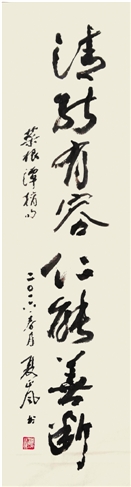 清能有容仁能善断
菜根谭摘句
二〇一六春月夏正风书